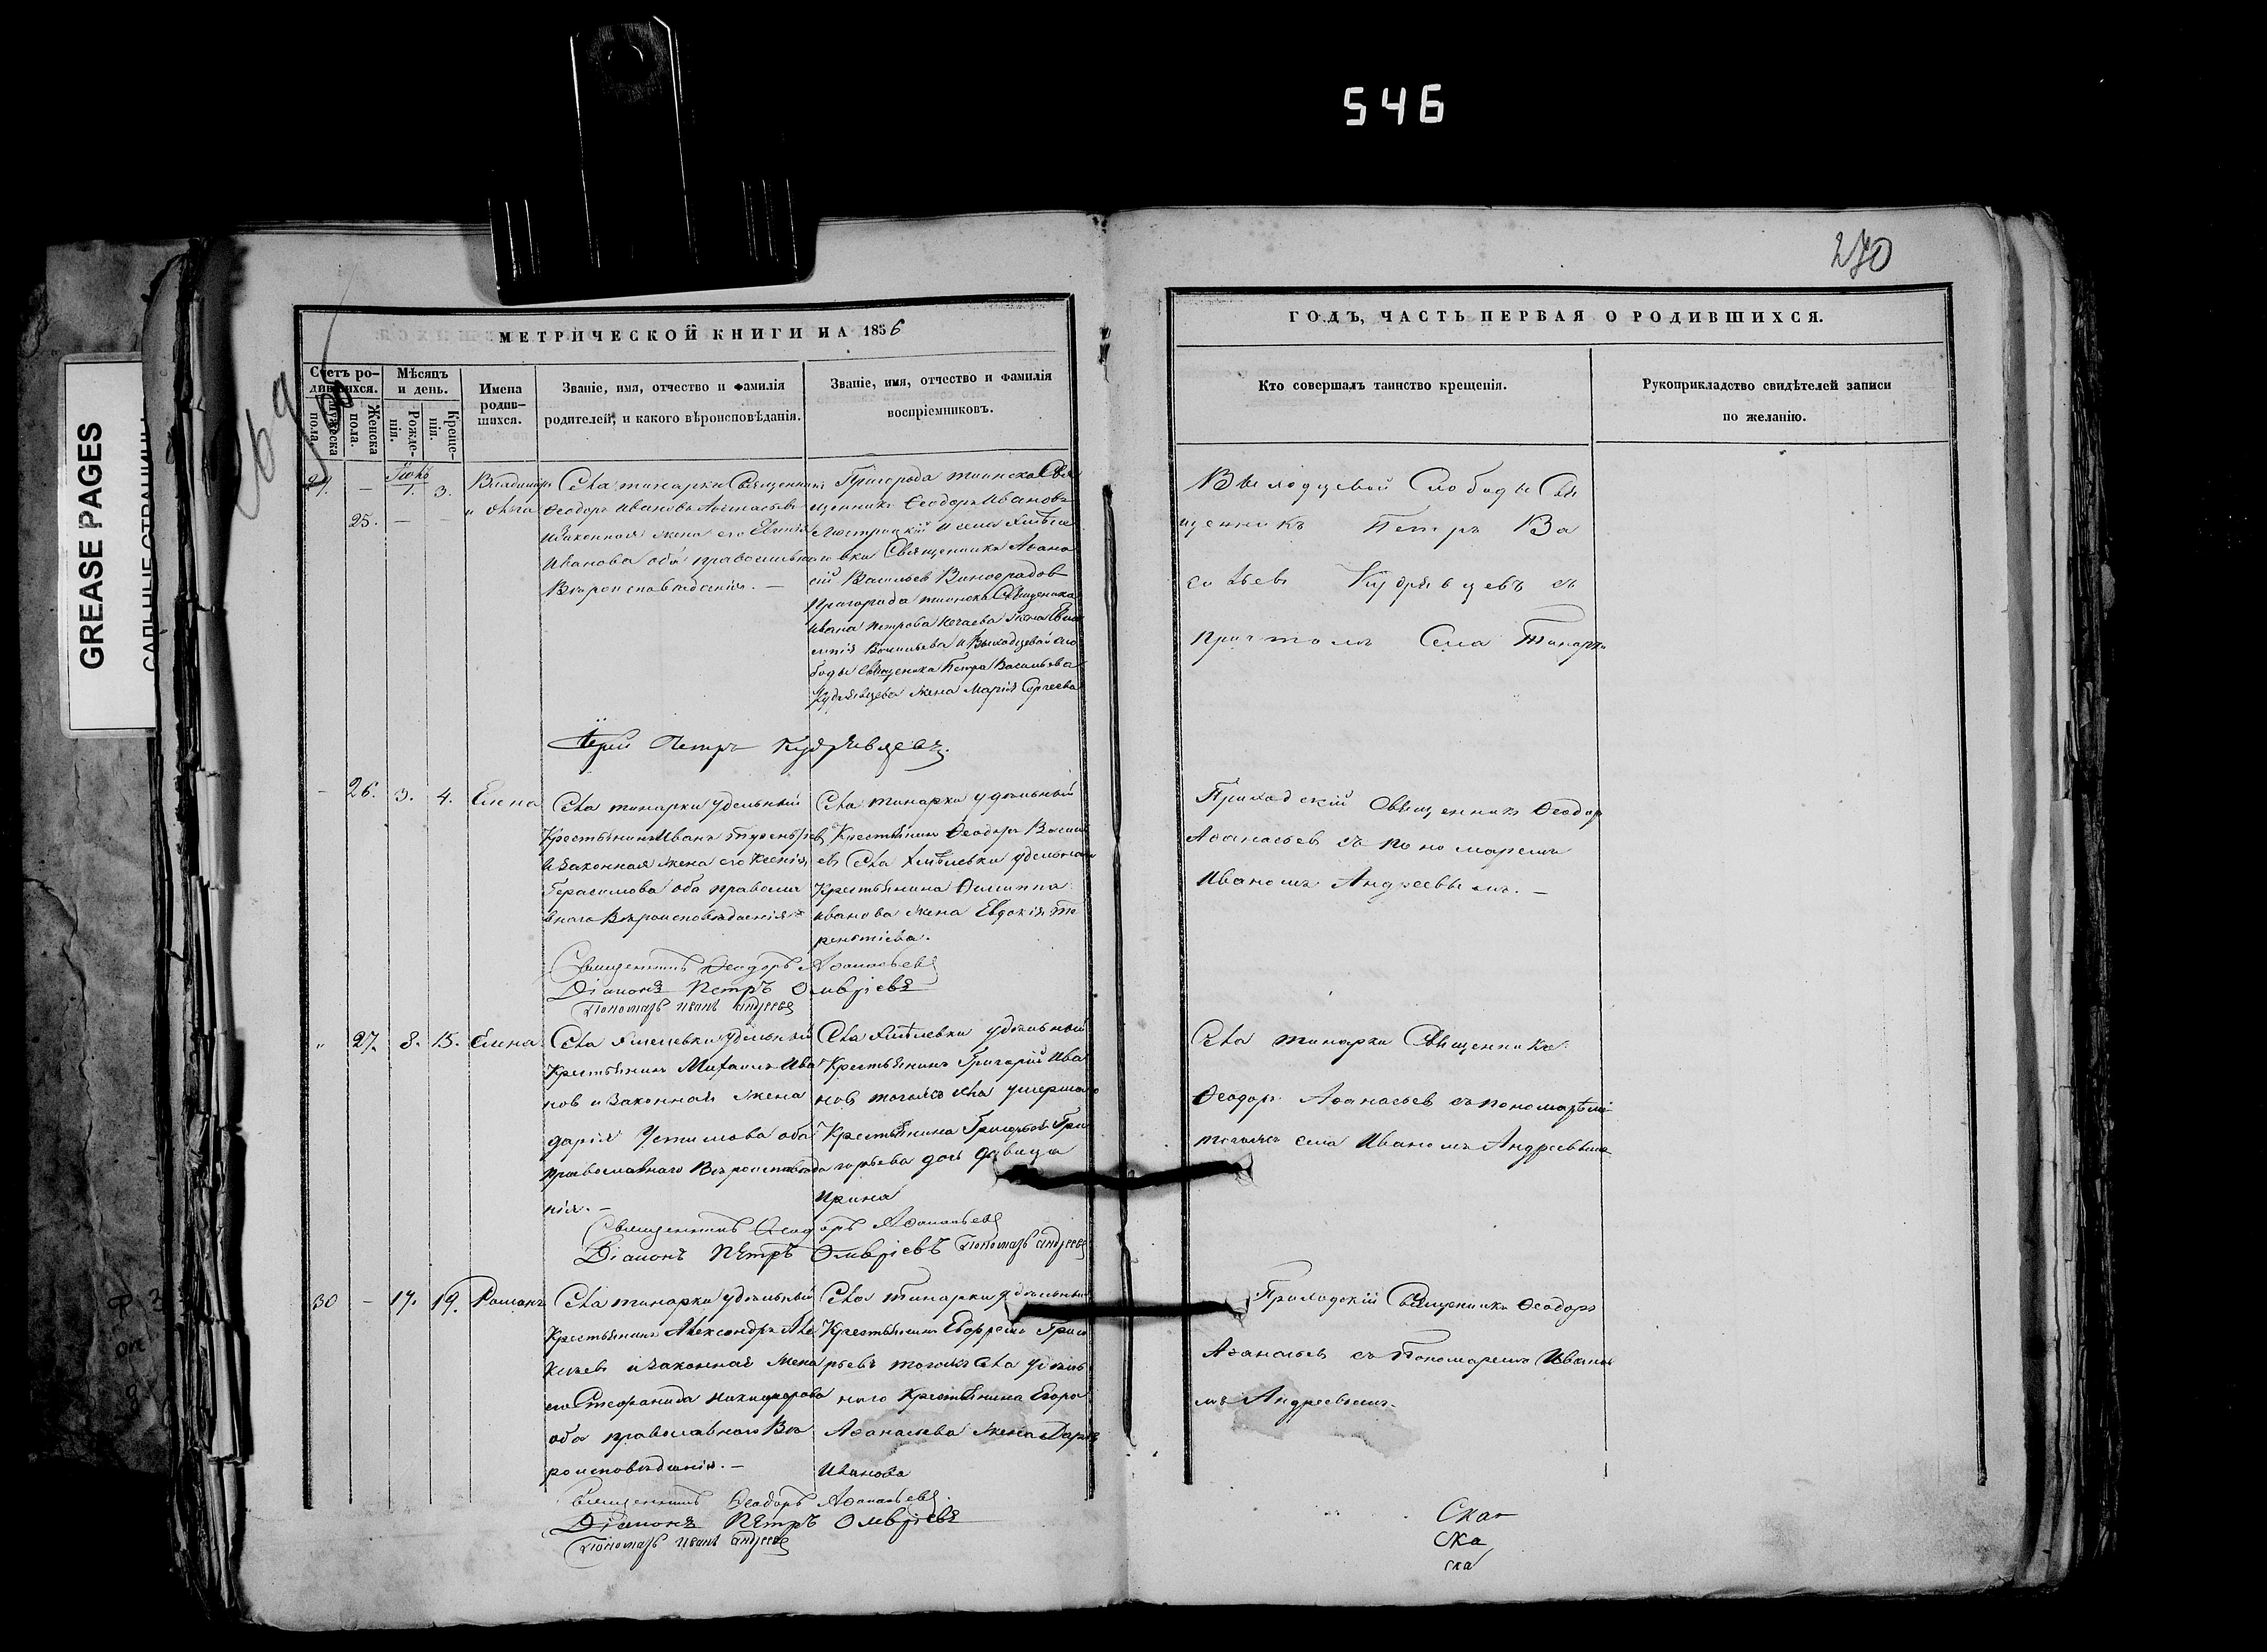 546
GREASE PAGES
САЛЬНЫЕ СТРАНИЦЫ
270
МЕТРИЧЕСКОЙ КНИГИ НА 1856
Счетъ ро-
дившихся.
Мужеска пола.
Женска пола.
Мѣсяцъ
и день.
Рожде-
нія.
Креще-
нія.
Имена
родив-
шихся.
Званіе, имя, отчество и фамилія
родителей, и какого вѣроисповѣданія.
Званіе, имя, отчество и фамилія
воспріемниковъ.
ГОДЪ, ЧАСТЬ ПЕРВАЯ О РОДИВШИХСЯ.
Кто совершалъ таинство крещенія.
Рукоприкладство свидѣтелей записи
по желанію.
29. — 1. 3.
25. — —
Владимиръ
и Ольга
Села Тинарки Священникъ
Феодоръ Ивановъ
и законная жена его
Иванова оба православнаго
Вѣроисповѣданія. —
Пригорода Тиинска Свя
щенникъ Феодоръ Ивановъ
и села
Священника Афана
сій Васильевъ Виноградовъ
Пригорода Тиинска Священника
Ивана Петрова Нечаева жена
Васильева и Выходцевой сло
боды Священника Петра Васильева
Кудрявцева жена Марія Сергеева
Выходцевой Слободы Свя
щенникъ Петръ Ва
сильевъ Кудрявцевъ съ
причтомъ Села Тинарки
Іерей Петръ Кудрявцевъ.
— 26. 3. 4. Елена
Села Тинарки удельный
Крестьянинъ Иванъ
и законная жена его Ксенія
Герасимова оба правосла
внаго Вѣроисповѣданія —
Села Тинарки удельный
Крестьянинъ Феодоръ Василь
евъ Села удельнаго
Крестьянина Филиппа
Иванова жена Евдокія Те
рентіева.
Приходскій Священникъ Феодоръ
Афанасьевъ съ пономаремъ
Иваномъ Андреевымъ. —
Священникъ Феодоръ Афанасьевъ
Діаконъ Петръ
Пономарь Иванъ Андреевъ
" 27. 8. 15. Елена
Села удельный
Крестьянинъ Михаилъ Ива
новъ и законная жена
Дарія Устимова оба
Православнаго Вѣроисповѣда
нія. —
Села удельный
Крестьянинъ Григорій Ива
новъ тогожъ села умершаго
Крестьянина Григорья Гри
горьева дочь девица
Ирина
Села Тинарки Священникъ
Феодоръ Афанасьевъ съ пономаремъ
тогожъ села Иваномъ Андреевымъ
Священникъ Феодоръ Афанасьевъ
Діаконъ Петръ Пономарь Андреевъ
30 — 17. 19. Романъ
Села Тинарки удельный
Крестьянинъ Александръ Але
ксѣевъ и законная жена
его Стефанида Никифорова
оба православнаго Вѣ
роисповѣданія. —
Села Тинарки удельный
Крестьянинъ Григо
рьевъ тогожъ Села удель
наго Крестьянина Егора
Афанасьева жена Дарія
Иванова
Приходскій Священникъ Феодоръ
Афанасьевъ съ Пономаремъ Ивано
мъ Андреевымъ.
Священникъ Феодоръ Афанасьевъ.
Діаконъ Петръ
Пономарь Иванъ Андреевъ
Ска
ска